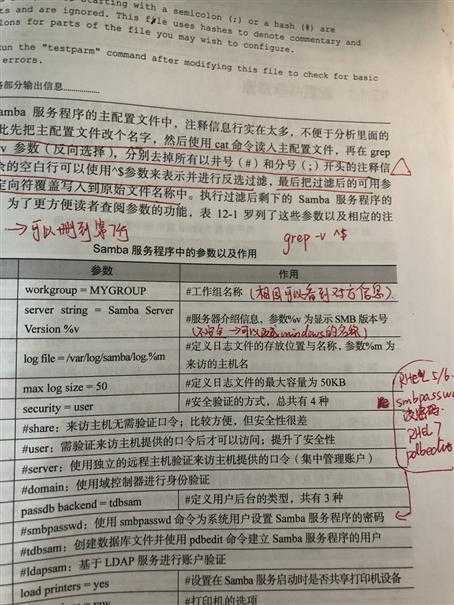 starting with a semicolon (;) or a hash (#) are
ts and are ignored. This file uses hashes to denote commentary and
ions for parts of the file you may wish to configure.
un the "testparm" command after modifying this file to check for basic
errors.
部分输出信息………………
amba 服务程序的主配置文件中，注释信息行实在太多，不便于分析里面的
此先把主配置文件改个名字，然后使用 cat 命令读入主配置文件，再在 grep
v 参数（反向选择），分别去掉所有以井号（#）和分号（;）开头的注释信
余的空白行可以使用^$参数来表示并进行反选过滤，最后把过滤后的可用参
定向符覆盖写入到原始文件名称中。执行过滤后剩下的 Samba 服务程序的
为了更方便读者查阅参数的功能，表 12-1 罗列了这些参数以及相应的注
→可以删到第7行
grep -v ^$
Samba 服务程序中的参数以及作用
参数 作用
workgroup = MYGROUP #工作组名称（相同可以看到对方信息）
server string = Samba Server Version %v #服务器介绍信息，参数%v 为显示 SMB 版本号
log file = /var/log/samba/log.%m #定义日志文件的存放位置与名称，参数%m 为来访的主机名
max log size = 50 #定义日志文件的最大容量为 50KB
security = user #安全验证的方式，总共有 4 种
#share：来访主机无需验证口令；比较方便，但安全性很差
#user：需验证来访主机提供的口令后才可以访问；提升了安全性
#server：使用独立的远程主机验证来访主机提供的口令（集中管理账户）
#domain：使用域控制器进行身份验证
passdb backend = tdbsam #定义用户后台的类型，共有 3 种
#smbpasswd：使用 smbpasswd 命令为系统用户设置 Samba 服务程序的密码
#tdbsam：创建数据库文件并使用 pdbedit 命令建立 Samba 服务程序的用户
#ldapsam：基于 LDAP 服务进行账户验证
load printers = yes #设置在 Samba 服务启动时是否共享打印机设备
#打印机的选项
RHEL 5/6
smbpasswd
改密码
RHEL 7
pdbedit